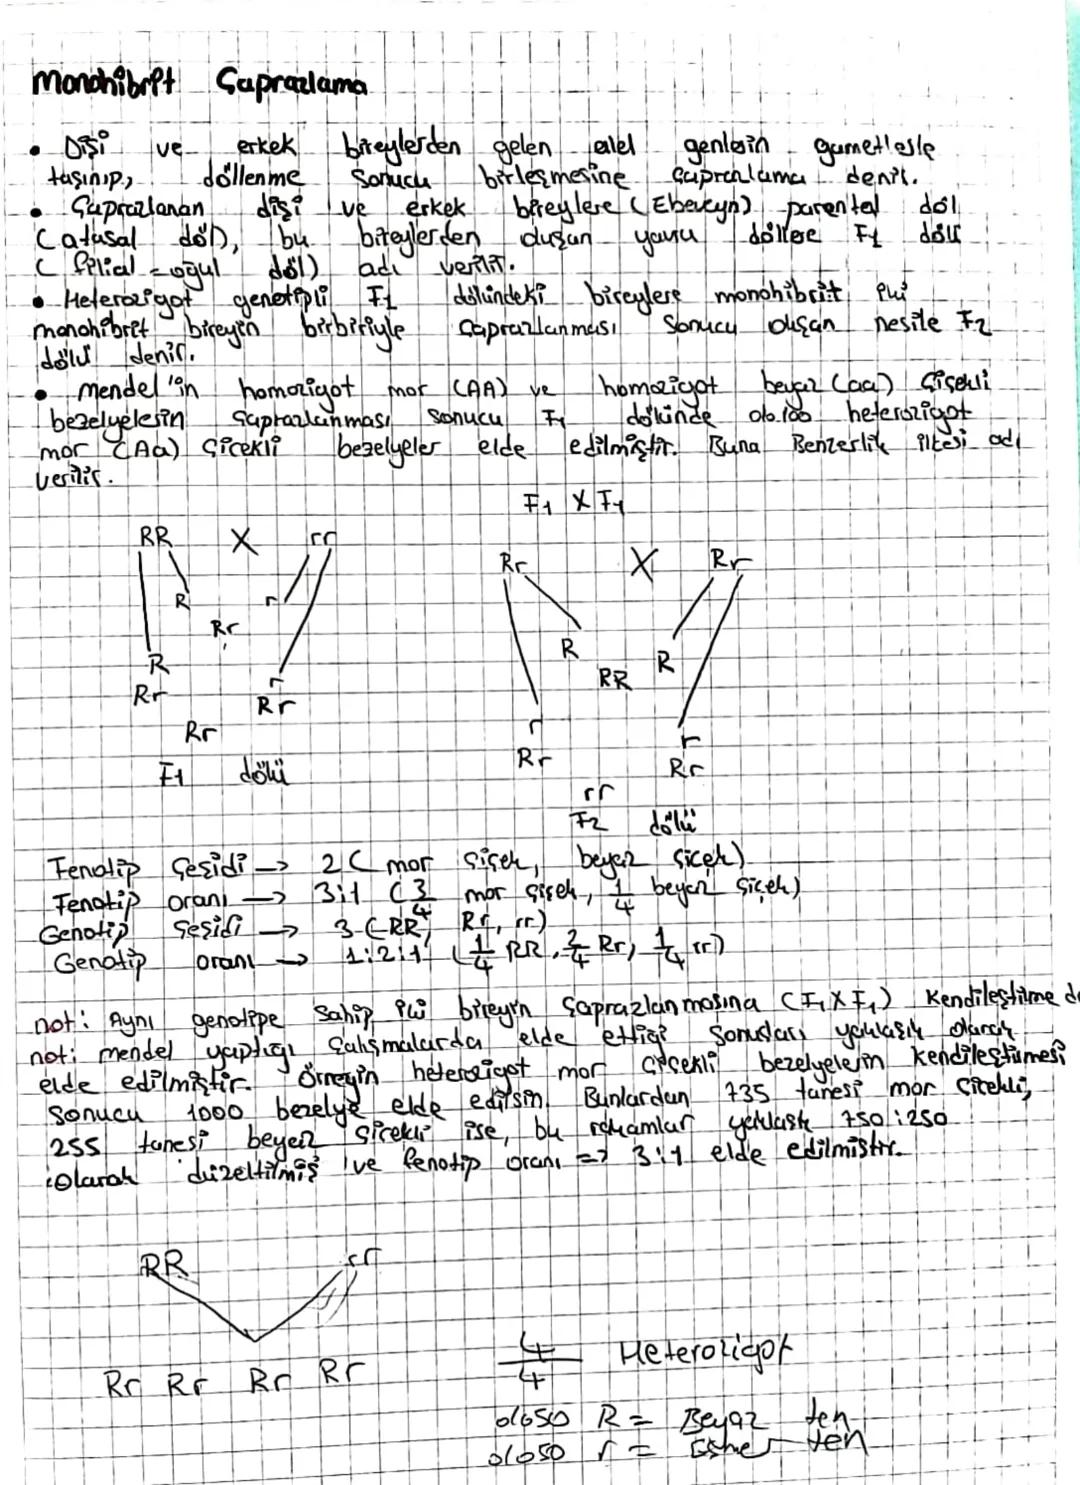 Monohibrit Çaprazlama
• Dişi ve erkek bireylerden gelen alel genlerin gametlerle
taşınıp, döllenme sonucu birleşmesine çaprazlama denir.
• Çaprazlanan dişi ve erkek bireylere (Ebeveyn) parental döl
(atasal döl), bu bireylerden duşan yavru döllere F1 dölü
( filial - oğul döl) adı verilir.
• Heterozigot genotipli F1 dölündeki bireylere monohibrit iki
monohibrit bireyin birbiriyle çaprazlanması sonucu oluşan nesile F2
dölü denir.
• mendel'in homozigot mor (AA) ve homozigot beyaz (aa) çiçekli
bezelyelerin çaprazlanması sonucu F1 dölünde %100 heterozigot
mor (Aa) çiçekli bezelyeler elde edilmiştir. Buna Benzerlik ilkesi adı
verilir.
F1 X F1
RR X rr
Rr X Rr
R r
Rr
R R
RR
R r
Rr Rr
Rr
r r
Rr Rr
F1 dölü
rr
F2 dölü
Fenotip çeşidi → 2 ( mor çiçek, beyaz çiçek)
Fenotip oranı → 3:1 (3/4 mor çiçek, 1/4 beyaz çiçek)
Genotip çeşidi → 3 (RR, Rr, rr)
Genotip oranı → 1:2:1 (1/4 RR, 2/4 Rr, 1/4 rr)
not: Aynı genotipe sahip iki bireyin çaprazlanmasına (F1 X F1) Kendileştirme de
not: mendel yaptığı çalışmalarda elde ettiği sonuçları yaklaşık olarak
elde edilmiştir. Örneyin heterozigot mor çiçekli bezelyelerin kendileştirmesi
sonucu 1000 bezelye elde edilsin. Bunlardan 735 tanesi mor çicekli,
255 tanesi beyaz çiçekli ise, bu rakamlar yaklaşık 750:250
olarak düzeltilmiş ve fenotip oranı => 3:1 elde edilmistir.
RR rr
Rr Rr Rr Rr
4/4 Heterozigot
%50 R = Beyaz ten
%50 r = Esmer ten